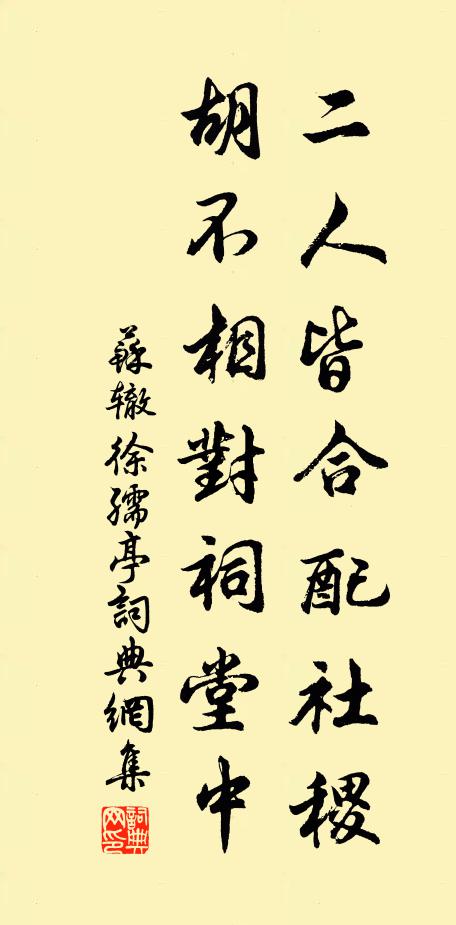 二人皆合配社稷
胡不相對祠堂中
蘇辙徐孺亭詞典網集
詞典
网印